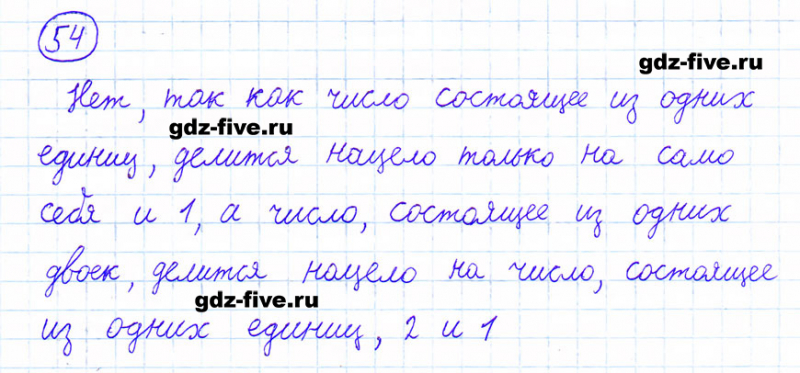 54
gdz-five.ru
Нет, так как число состоящее из одних
gdz-five.ru
единиц, делится нацело только на само
себя и 1, а число, состоящее из одних
двоек, делится нацело на число, состоящее
gdz-five.ru
из одних единиц, 2 и 1